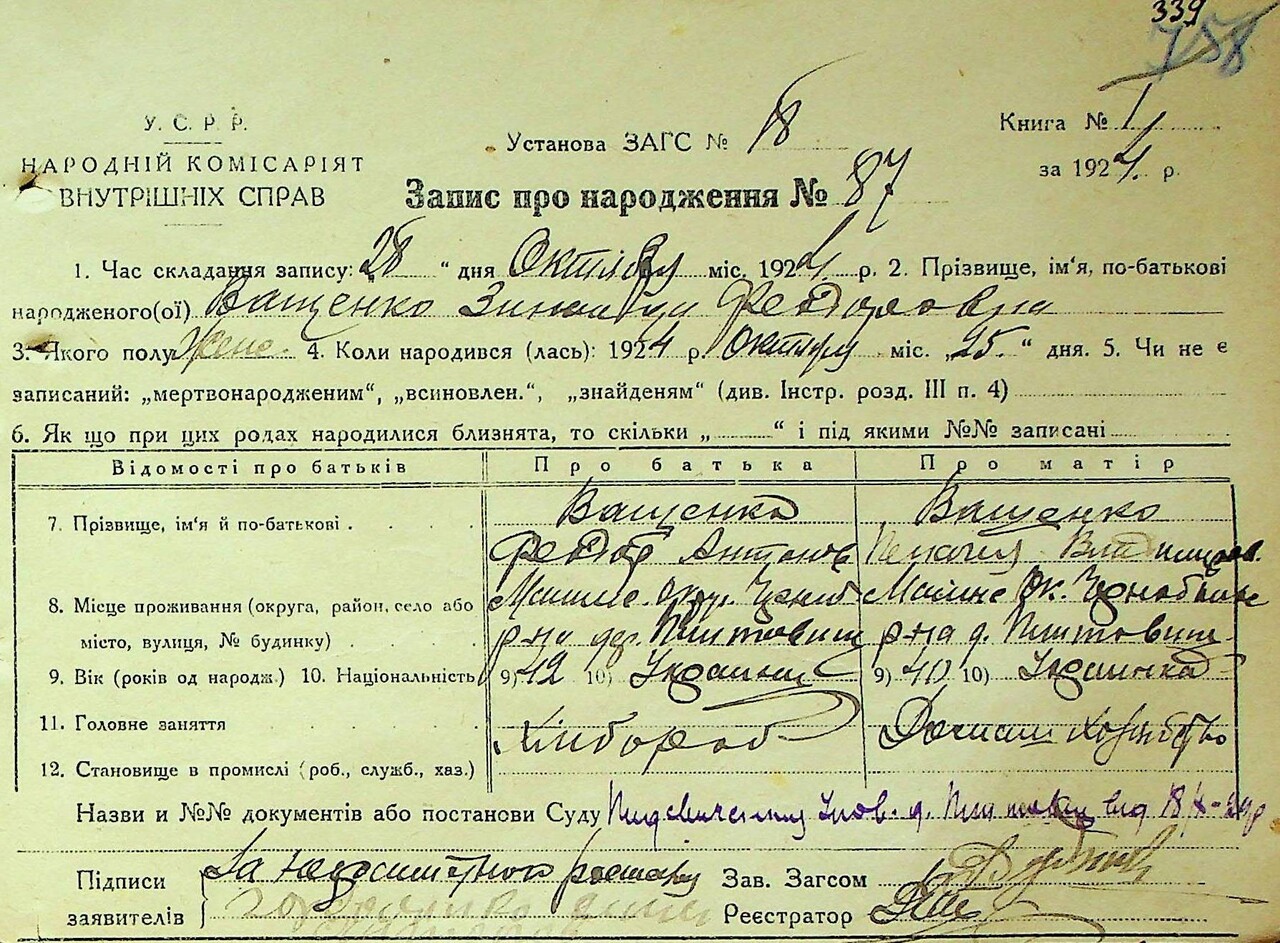 339
758
У. С. Р. Р.
НАРОДНІЙ КОМІСАРІЯТ
ВНУТРІШНІХ СПРАВ
Установа ЗАГС № 18
Книга № 1
за 1924 р.
Запис про народження № 87
1. Час складання запису: 28 " дня Октября міс. 1924 р. 2. Прізвище, ім'я, по-батькові
народженого(ої) Ващенко Зинаида Федоровна
3. Якого полу Жено. 4. Коли народився (лась): 1924 р. Октября міс. „25" дня. 5. Чи не є
записаний: „мертвонародженим", „всиновлен.", „знайденям" (див. Інстр. розд. III п. 4)
6. Як що при цих родах народилися близнята, то скільки „ " і під якими №№ записані
Відомості про батьків Про батька Про матір
7. Прізвище, ім'я й по-батькові Ващенко Ващенко
Федор Антонов
8. Місце проживання (округа, район, село або
місто, вулиця, № будинку)
9. Вік (років од народж.) 10. Національність 9) 42 10) Украинец 9) 40 10) Украинка
11. Головне заняття Хлибороб
12. Становище в промислі (роб., служб., хаз.)
Назви и №№ документів або постанови Суду
Підписи За
заявителів
Зав. Загсом
Реєстратор